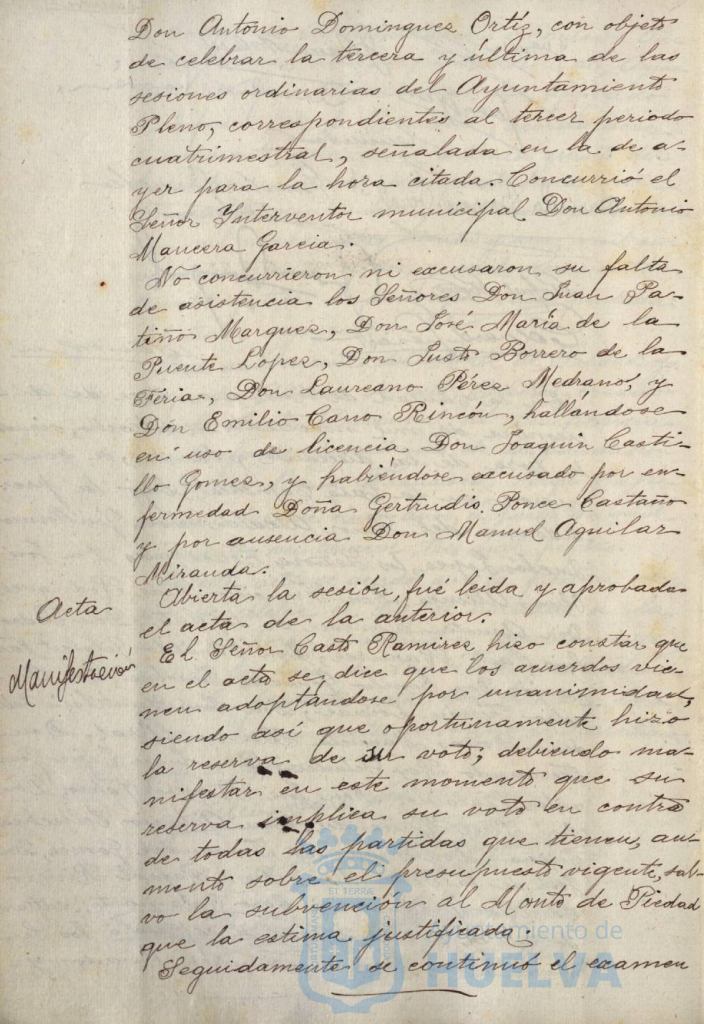 Don Antonio Dominguez Ortíz, con objeto
de celebrar la tercera y última de las
sesiones ordinarias del Ayuntamiento
Pleno, correspondientes al tercer periodo
cuatrimestral, señalada en la de a-
yer para la hora citada. Concurrió el
Señor Interventor municipal Don Antonio
Mancera Garcia.
No concurrieron ni excusaron su falta
de asistencia los Señores Don Juan Pa-
tiño Marquez, Don José María de la
Puente Lopez, Don Justo Borrero de la
Feria, Don Laureano Pérez Medrano, y
Don Emilio Cano Rincón, hallándose
en uso de licencia Don Joaquin Casti-
llo Gomez, y habiéndose excusado por en-
fermedad Doña Gertrudis Ponce Castaño
y por ausencia Don Manuel Aguilar
Miranda.
Acta
Abierta la sesión, fué leida y aprobada
el acta de la anterior.
Manifestación
El Señor Casto Ramirez hizo constar que
en el acta se dice que los acuerdos vie-
nen adoptándose por unanimidad,
siendo así que oportunamente hizo
la reserva de su voto; debiendo ma-
nifestar en este momento que su
reserva implica su voto en contra
de todas las partidas que tienen au-
mento sobre el presupuesto vigente, sal-
vo la subvención al Monte de Piedad
que la estima justificada.
Seguidamente se continuó el examen
ET TERRÆ
Ayuntamiento de
HUELVA